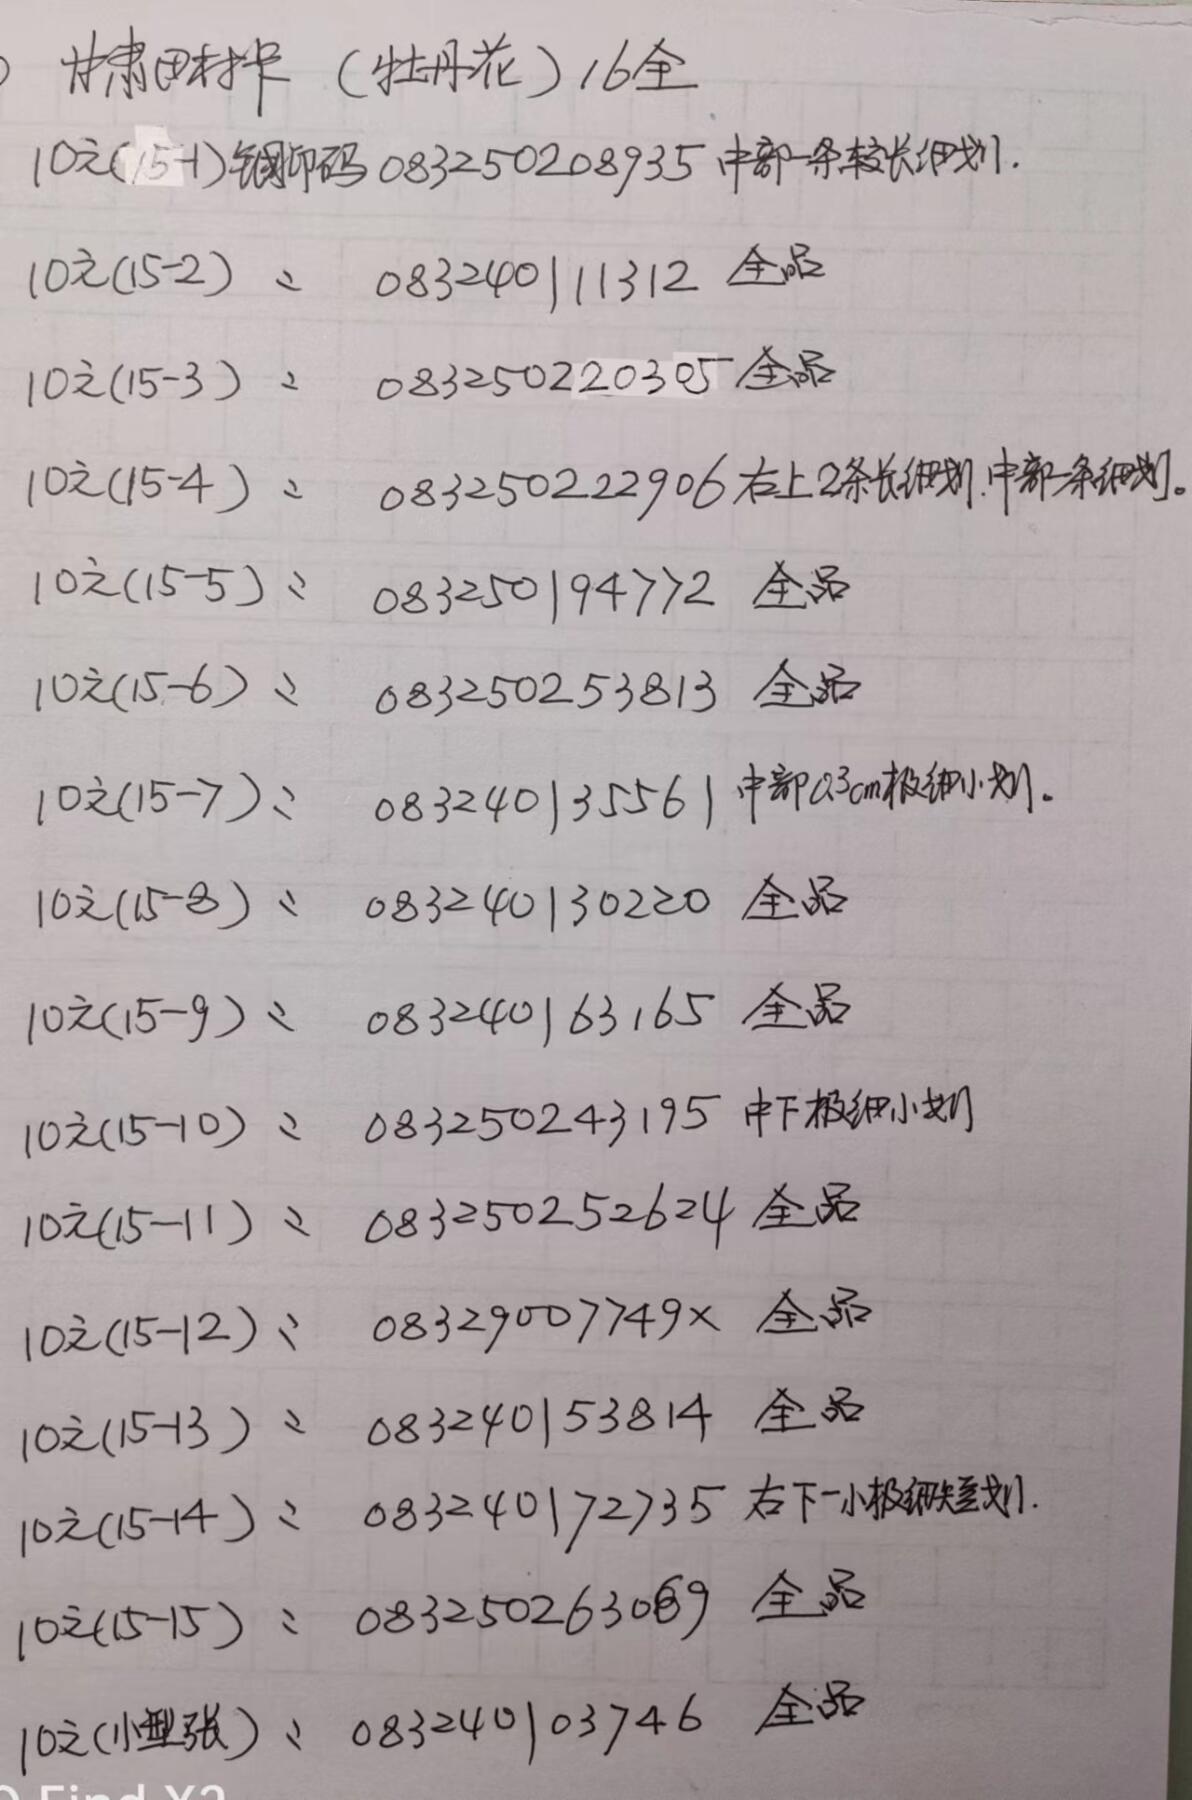 甘肃田村卡（牡丹花）16全
10元(15-1)钢印码 083250208935 中部一条较长细划.
10元(15-2) 〃 083240111312 全品
10元(15-3) 〃 083250220305 全品
10元(15-4) 〃 083250222906 右上2条长细划.中部一条细划。
10元(15-5) 〃 083250194772 全品
10元(15-6) 〃 083250253813 全品
10元(15-7) 〃 083240135561 中部0.3cm极细小划。
10元(15-8) 〃 083240130220 全品
10元(15-9) 〃 083240163165 全品
10元(15-10) 〃 083250243195 中下极细小划
10元(15-11) 〃 083250252624 全品
10元(15-12) 〃 08329007749x 全品
10元(15-13) 〃 083240153814 全品
10元(15-14) 〃 083240172735 右下一小极细短划.
10元(15-15) 〃 083250263069 全品
10元(小型张) 〃 083240103746 全品
Find X2